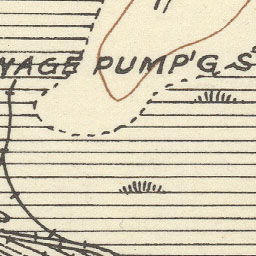 WAGE PUMP'G S